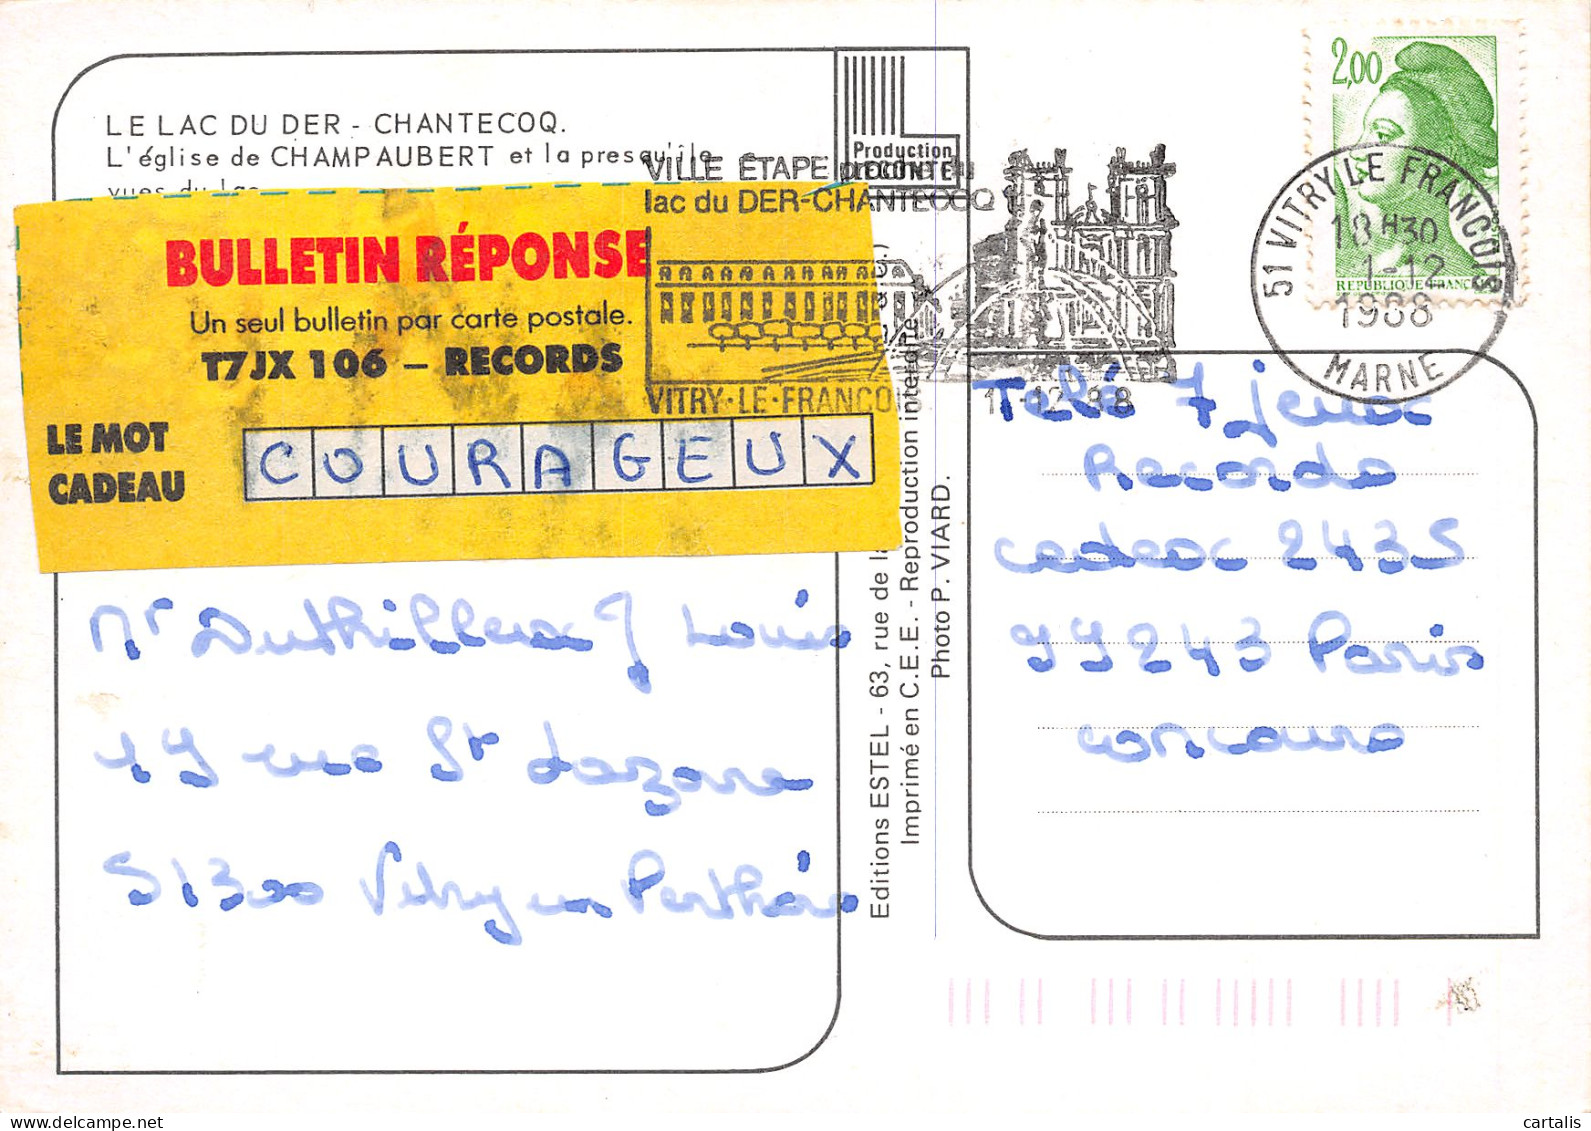 LE LAC DU DER - CHANTECOQ.
L'église de CHAMPAUBERT et la presqu'île
vues du lac
Production
LECONTE
VILLE ÉTAPE proche du
lac du DER-CHANTECOQ
VITRY-LE-FRANCO
1-12-88
2,00
REPUBLIQUE FRANC
51 VITRY LE FRANCOIS
18 H30
1-12
1988
MARNE
BULLETIN RÉPONSE
Un seul bulletin par carte postale.
T7JX 106 – RECORDS
LE MOT
CADEAU
COURAGEUX
Mr Duthilleux J Louis
19 rue St Lazare
51300 Vitry en Perthois
Editions ESTEL - 63, rue de la
Imprimé en C.E.E. - Reproduction interdite
Photo P. VIARD.
Télé 7 jeux
Records
cedex 2435
99243 Paris
concours
delcampe.net
cartalis